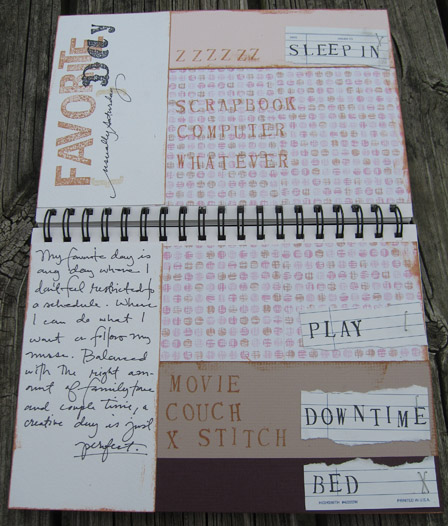 FAVORITE
Day
usually Saturday
Z Z Z Z Z Z
SLEEP IN
SCRAPBOOK
COMPUTER
WHATEVER
My favorite day is
any day where I
don't feel restricted to
a schedule. Where
I can do what I
want or follow my
muse. Balanced
with the right am-
ount of family time
and couple time, a
creative day is just
perfect.
PLAY
MOVIE
COUCH
X STITCH
DOWNTIME
BED
HIGHSMITH
PRINTED IN U.S.A.